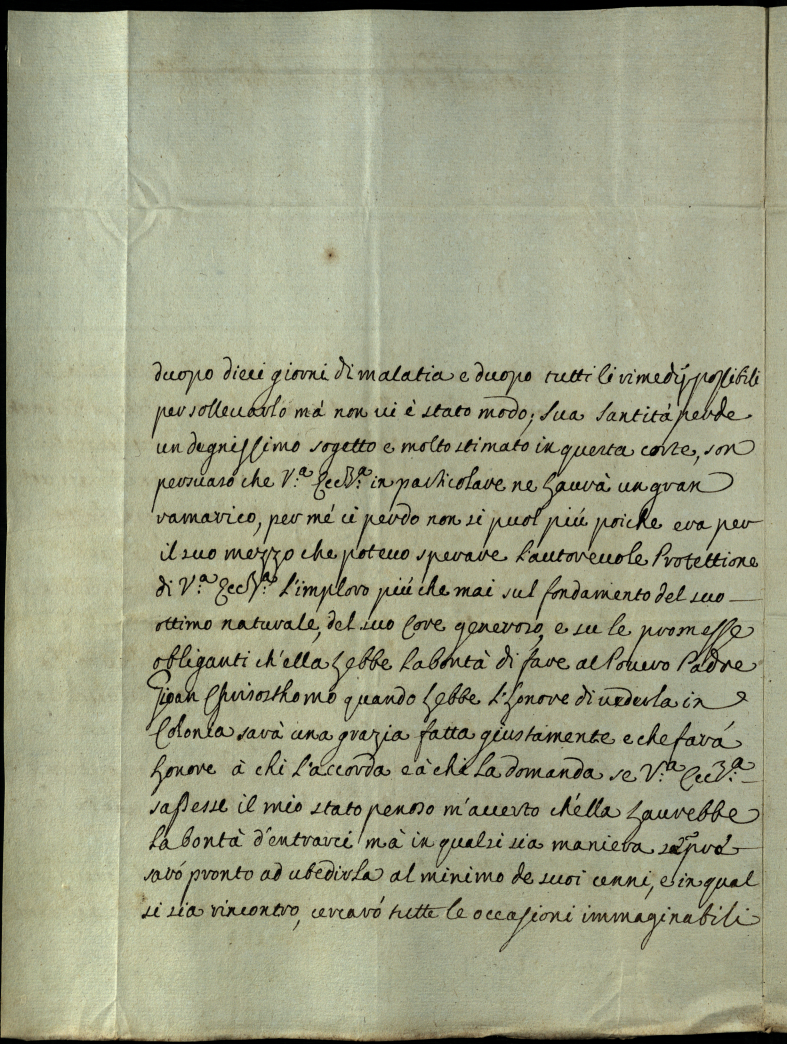 duopo dieci giorni di malatia e duopo tutti li rimedÿ possibili
per sollevarlo mà non vi è stato modo; sua santitá perde
un degnissimo sogetto e molto stimato in questa corte, son
persuaso che V.ª Ecc.ª in particolare ne haurà un gran
ramarico, per mé ci perdo non si puol piú poiche era per
il suo mezzo che potevo sperare l'autorevole Protettione
di V.ª Ecc.ª l'imploro piú che mai sul fondamento del suo
ottimo naturale, del suo Core generoso, e su le promesse
obliganti ch'ella hebbe la bontà di fare al Povero Padre
Gioan Chrisosthomo quando hebbe l'honore di vederla in
Colonia sarà una grazia fatta giustamente e che fará
honore à chi l'accorda e à chi la domanda se V.ª Ecc.ª
sapesse il mio stato penoso m'accerto ch'ella haurebbe
la bontà d'entrarci mà in qualsi sia maniera
saró pronto ad ubedirla al minimo de suoi cenni, e in qual
si sia rincontro, cercaró tutte le occasioni immaginabili